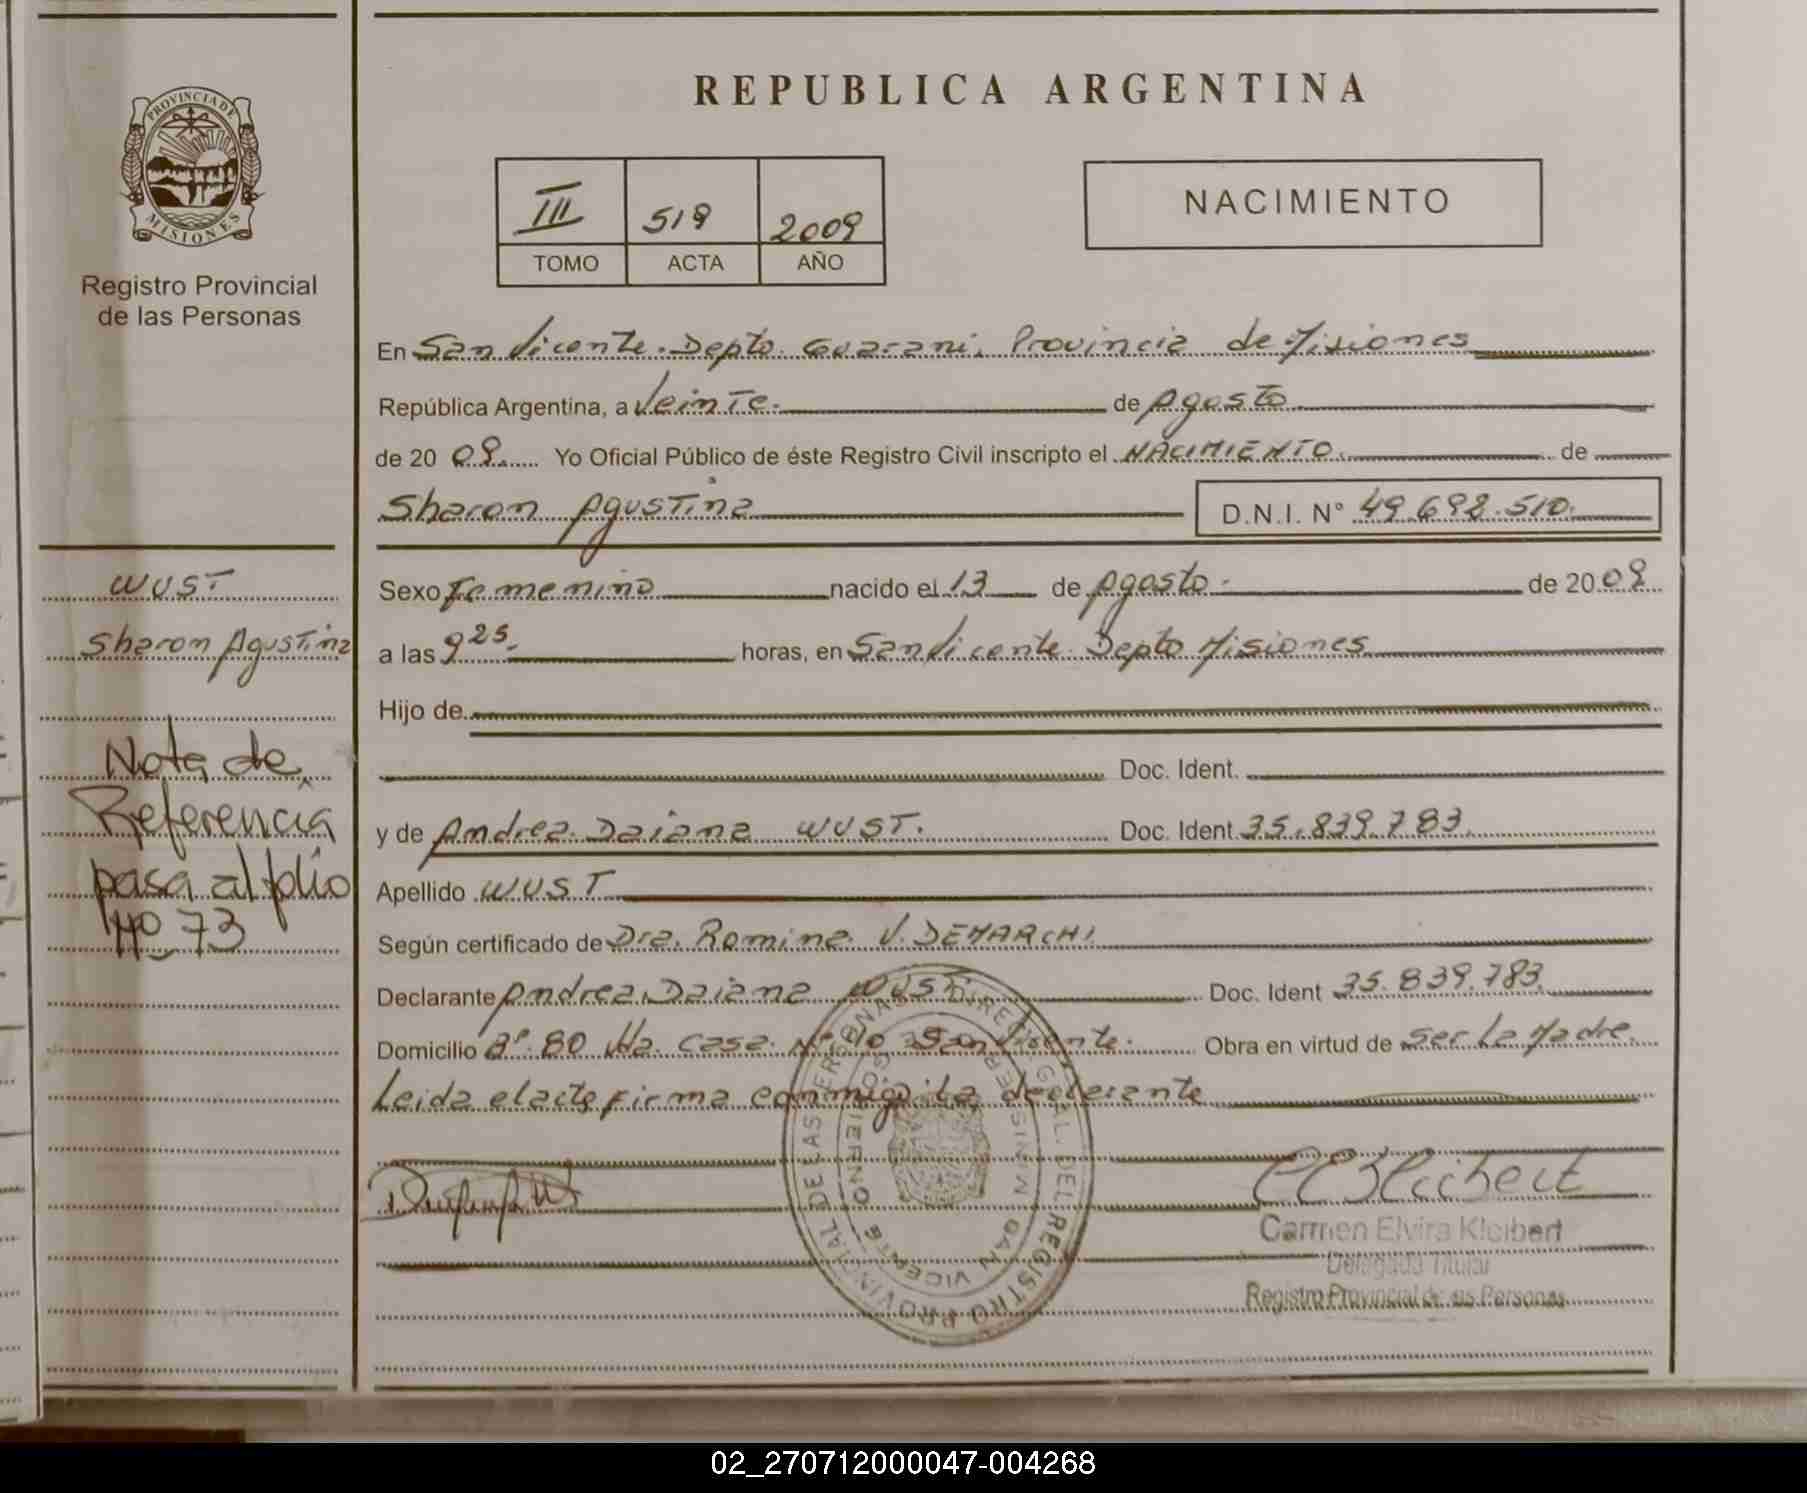 PROVINCIA DE
MISIONES
Registro Provincial
de las Personas
REPUBLICA ARGENTINA
III 519 2009
TOMO ACTA AÑO
NACIMIENTO
En San Vicente. Depto. Guarani. Provincia de Misiones
República Argentina, a Veinte. de Agosto
de 20 09. Yo Oficial Público de éste Registro Civil inscripto el NACIMIENTO. de
Sharon Agustina D.N.I. N° 49.692.510.
WUST
Sharon Agustina
Nota de
Referencia
pasa al folio
Nº 73
Sexo Femenino nacido el 13 de Agosto. de 20 09.
a las 9 25. horas, en San Vicente. Depto Misiones
Hijo de
Doc. Ident.
y de Andrea Daiana WUST. Doc. Ident 35.839.783.
Apellido WUST
Según certificado de Dra. Romina V. DEMARCHI
Declarante Andrea Daiana WUST. Doc. Ident 35.839.783.
Domicilio Bº 80 Va. Casa. Nº San Vicente. Obra en virtud de ser La Madre.
Leida el acta firma conmigo La declarante
DIREC. GRAL. DEL REGISTRO PROVINCIAL DE LAS PERSONAS
SAN VICENTE
MISIONES
Carmen Elvira Kleibert
Delegada Titular
Registro Provincial de las Personas
02_270712000047-004268